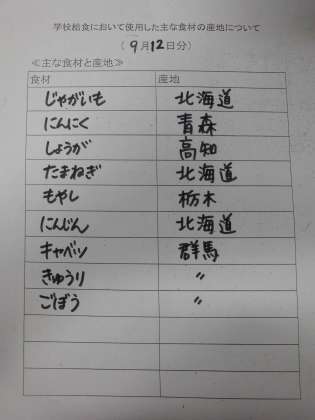 学校給食において使用した主な食材の産地について
(9月12日分)
≪主な食材と産地≫
食材 産地
じゃがいも 北海道
にんにく 青森
しょうが 高知
たまねぎ 北海道
もやし 栃木
にんじん 北海道
キャベツ 群馬
きゅうり 〃
ごぼう 〃